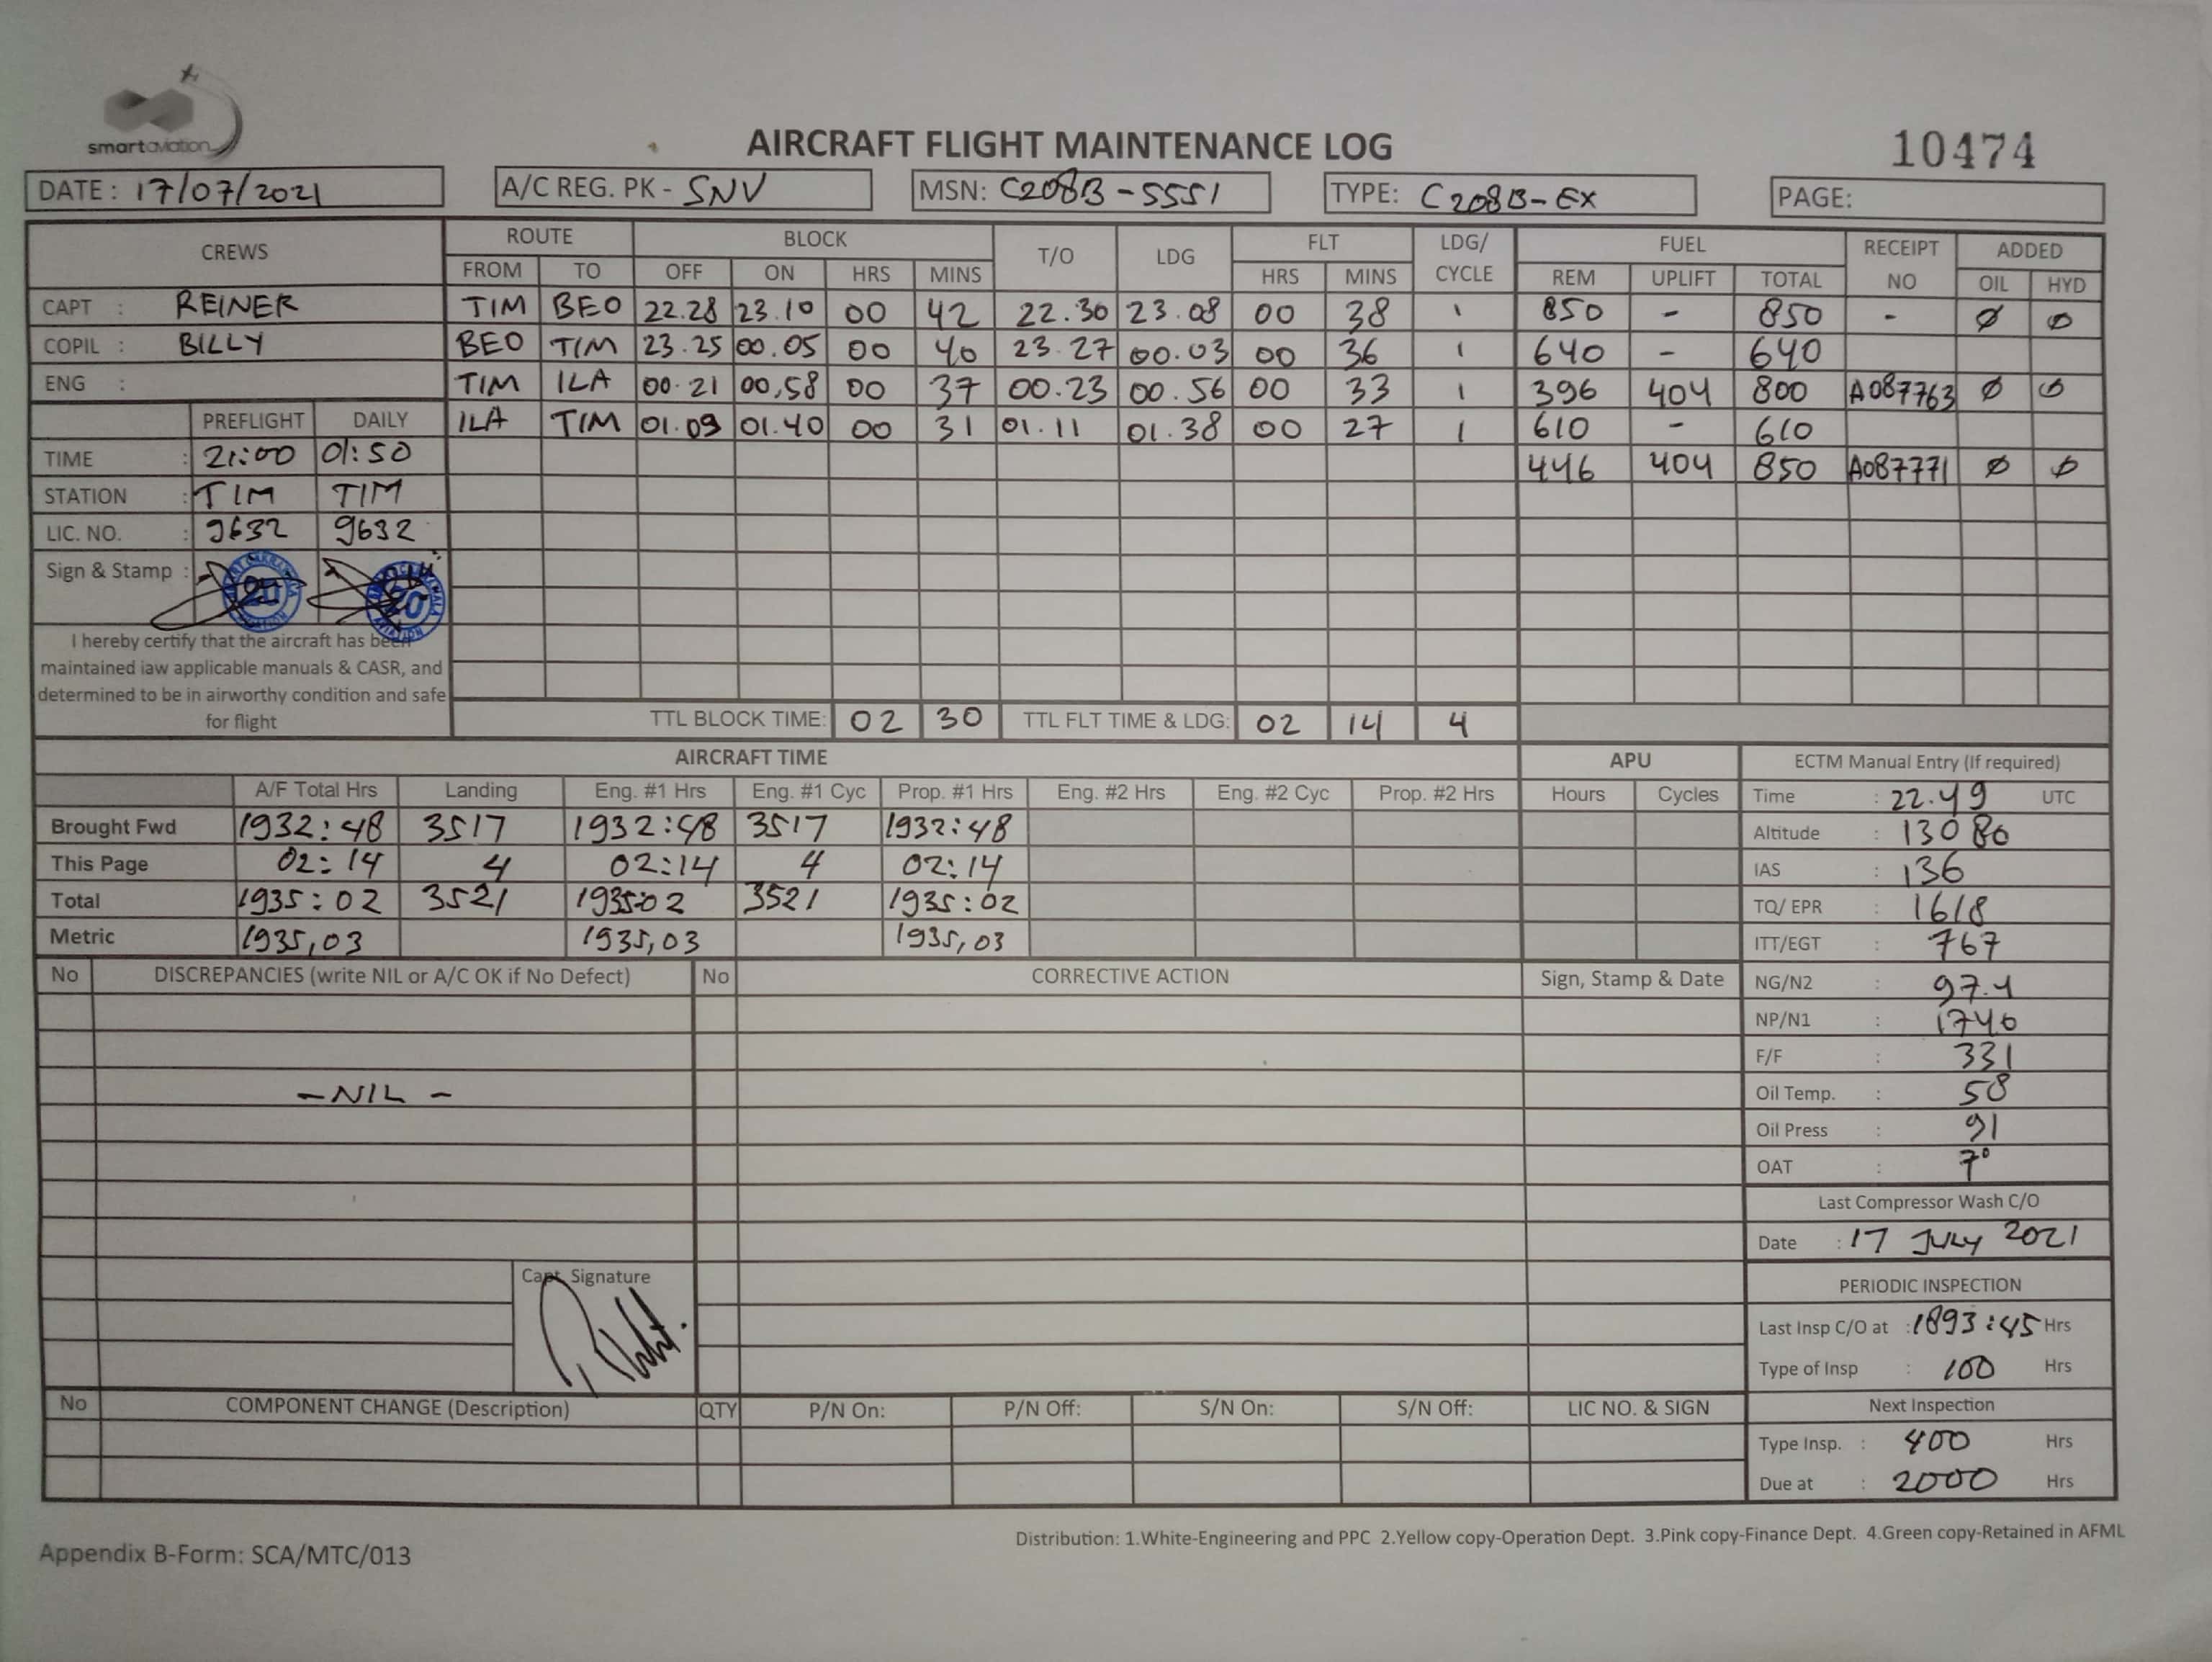 smart aviation
AIRCRAFT FLIGHT MAINTENANCE LOG
10474
DATE : 17/07/2021 A/C REG. PK - SNV MSN: C208B-5551 TYPE: C208B-EX PAGE:
CREWS ROUTE BLOCK T/O LDG FLT LDG/ CYCLE FUEL RECEIPT NO ADDED
FROM TO OFF ON HRS MINS HRS MINS REM UPLIFT TOTAL OIL HYD
CAPT : REINER TIM BEO 22.28 23.10 00 42 22.30 23.08 00 38 1 850 - 850 - Ø Ø
COPIL : BILLY BEO TIM 23.25 00.05 00 40 23.27 00.03 00 36 1 640 - 640
ENG : TIM ILA 00.21 00,58 00 37 00.23 00.56 00 33 1 396 404 800 A087763 Ø Ø
PREFLIGHT DAILY ILA TIM 01.09 01.40 00 31 01.11 01.38 00 27 1 610 - 610
TIME : 21:00 01:50 446 404 850 A087771 Ø Ø
STATION : TIM TIM
LIC. NO. : 9632 9632
Sign & Stamp :
I hereby certify that the aircraft has been
maintained iaw applicable manuals & CASR, and
determined to be in airworthy condition and safe
for flight
TTL BLOCK TIME: 02 30 TTL FLT TIME & LDG: 02 14 4
AIRCRAFT TIME APU ECTM Manual Entry (If required)
A/F Total Hrs Landing Eng. #1 Hrs Eng. #1 Cyc Prop. #1 Hrs Eng. #2 Hrs Eng. #2 Cyc Prop. #2 Hrs Hours Cycles Time : 22.49 UTC
Brought Fwd 1932:48 3517 1932:48 3517 1932:48 Altitude : 13080
This Page 02:14 4 02:14 4 02:14 IAS : 136
Total 1935:02 3521 1935:02 3521 1935:02 TQ/ EPR : 1618
Metric 1935,03 1935,03 1935,03 ITT/EGT : 767
No DISCREPANCIES (write NIL or A/C OK if No Defect) No CORRECTIVE ACTION Sign, Stamp & Date NG/N2 : 97.4
NP/N1 : 1740
F/F : 331
- NIL - Oil Temp. : 58
Oil Press : 91
OAT : 7°
Last Compressor Wash C/O
Date : 17 JULY 2021
Capt. Signature
PERIODIC INSPECTION
Last Insp C/O at : 1893:45 Hrs
Type of Insp : 100 Hrs
No COMPONENT CHANGE (Description) QTY P/N On: P/N Off: S/N On: S/N Off: LIC NO. & SIGN Next Inspection
Type Insp. : 400 Hrs
Due at : 2000 Hrs
Distribution: 1.White-Engineering and PPC 2.Yellow copy-Operation Dept. 3.Pink copy-Finance Dept. 4.Green copy-Retained in AFML
Appendix B-Form: SCA/MTC/013